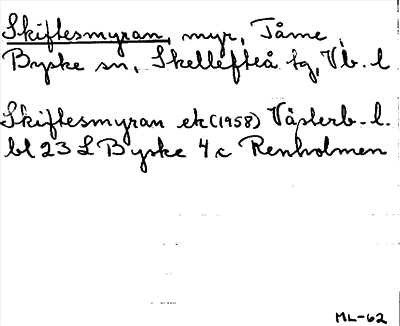 Skiftesmyran, myr, Tåme
Byske sn, Skellefteå tg, Vb. l
Skiftesmyran ek (1958) Västerb. l.
bl 23 L Byske 4 c Renholmen
ML-62